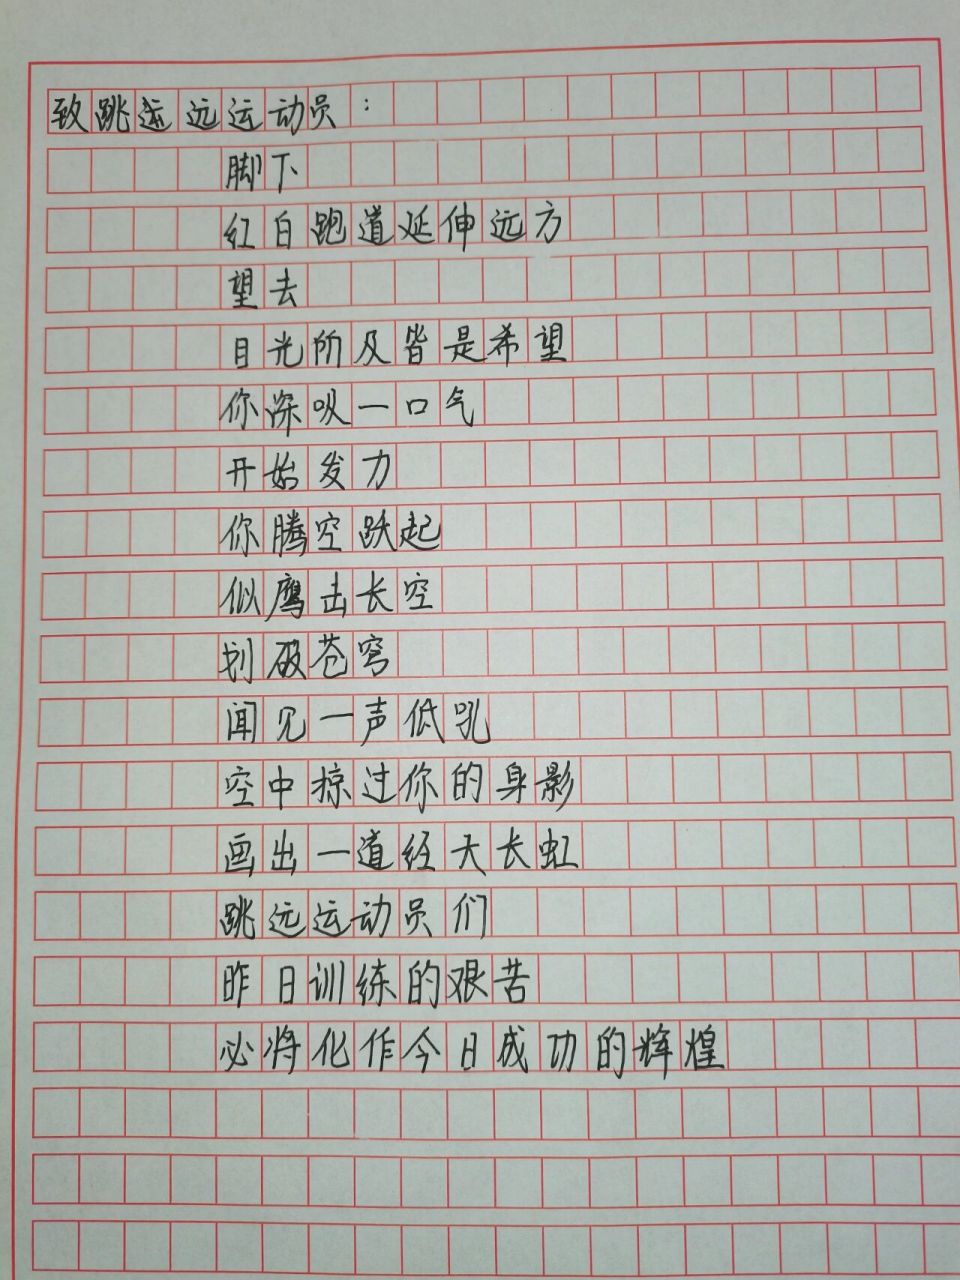 致跳运远运动员：
脚下
红白跑道延伸远方
望去
目光所及皆是希望
你深吸一口气
开始发力
你腾空跃起
似鹰击长空
划破苍穹
闻见一声低吼
空中掠过你的身影
画出一道经天长虹
跳远运动员们
昨日训练的艰苦
必将化作今日成功的辉煌